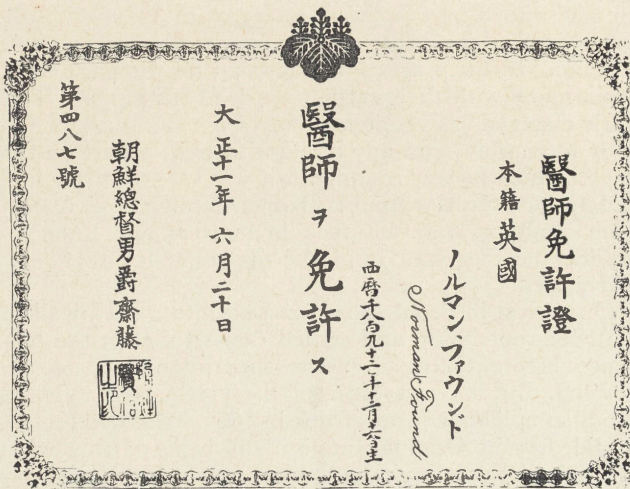 醫師免許證
本籍英國
ノルマン、ファウンド
Norman Found
西暦千八百九十二年十二月十六日生
醫師ヲ免許ス
大正十一年六月二十日
朝鮮總督男爵齋藤實
第四八七號